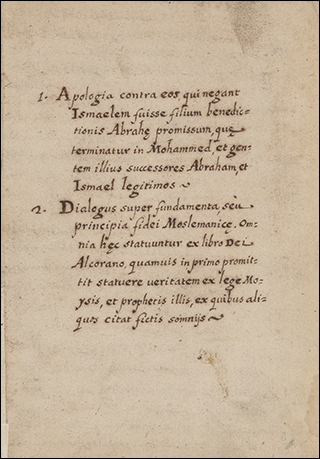 1. Apologia contra eos qui negant
Ismaelem fuisse filium benedic=
tionis Abrahę promissum, quę
terminatur in Mohammed, et gen=
tem illius successores Abraham, et
Ismael legitimos
2. Dialogus super fundamenta, seu
principia fidei Moslemanicę. Om=
nia hęc statuuntur ex libro DEI
Alcorano, quamuis in primo promit=
tit statuere veritatem ex lege Mo=
ysis, et prophetis illis, ex quibus ali=
quos citat fictis somnijs